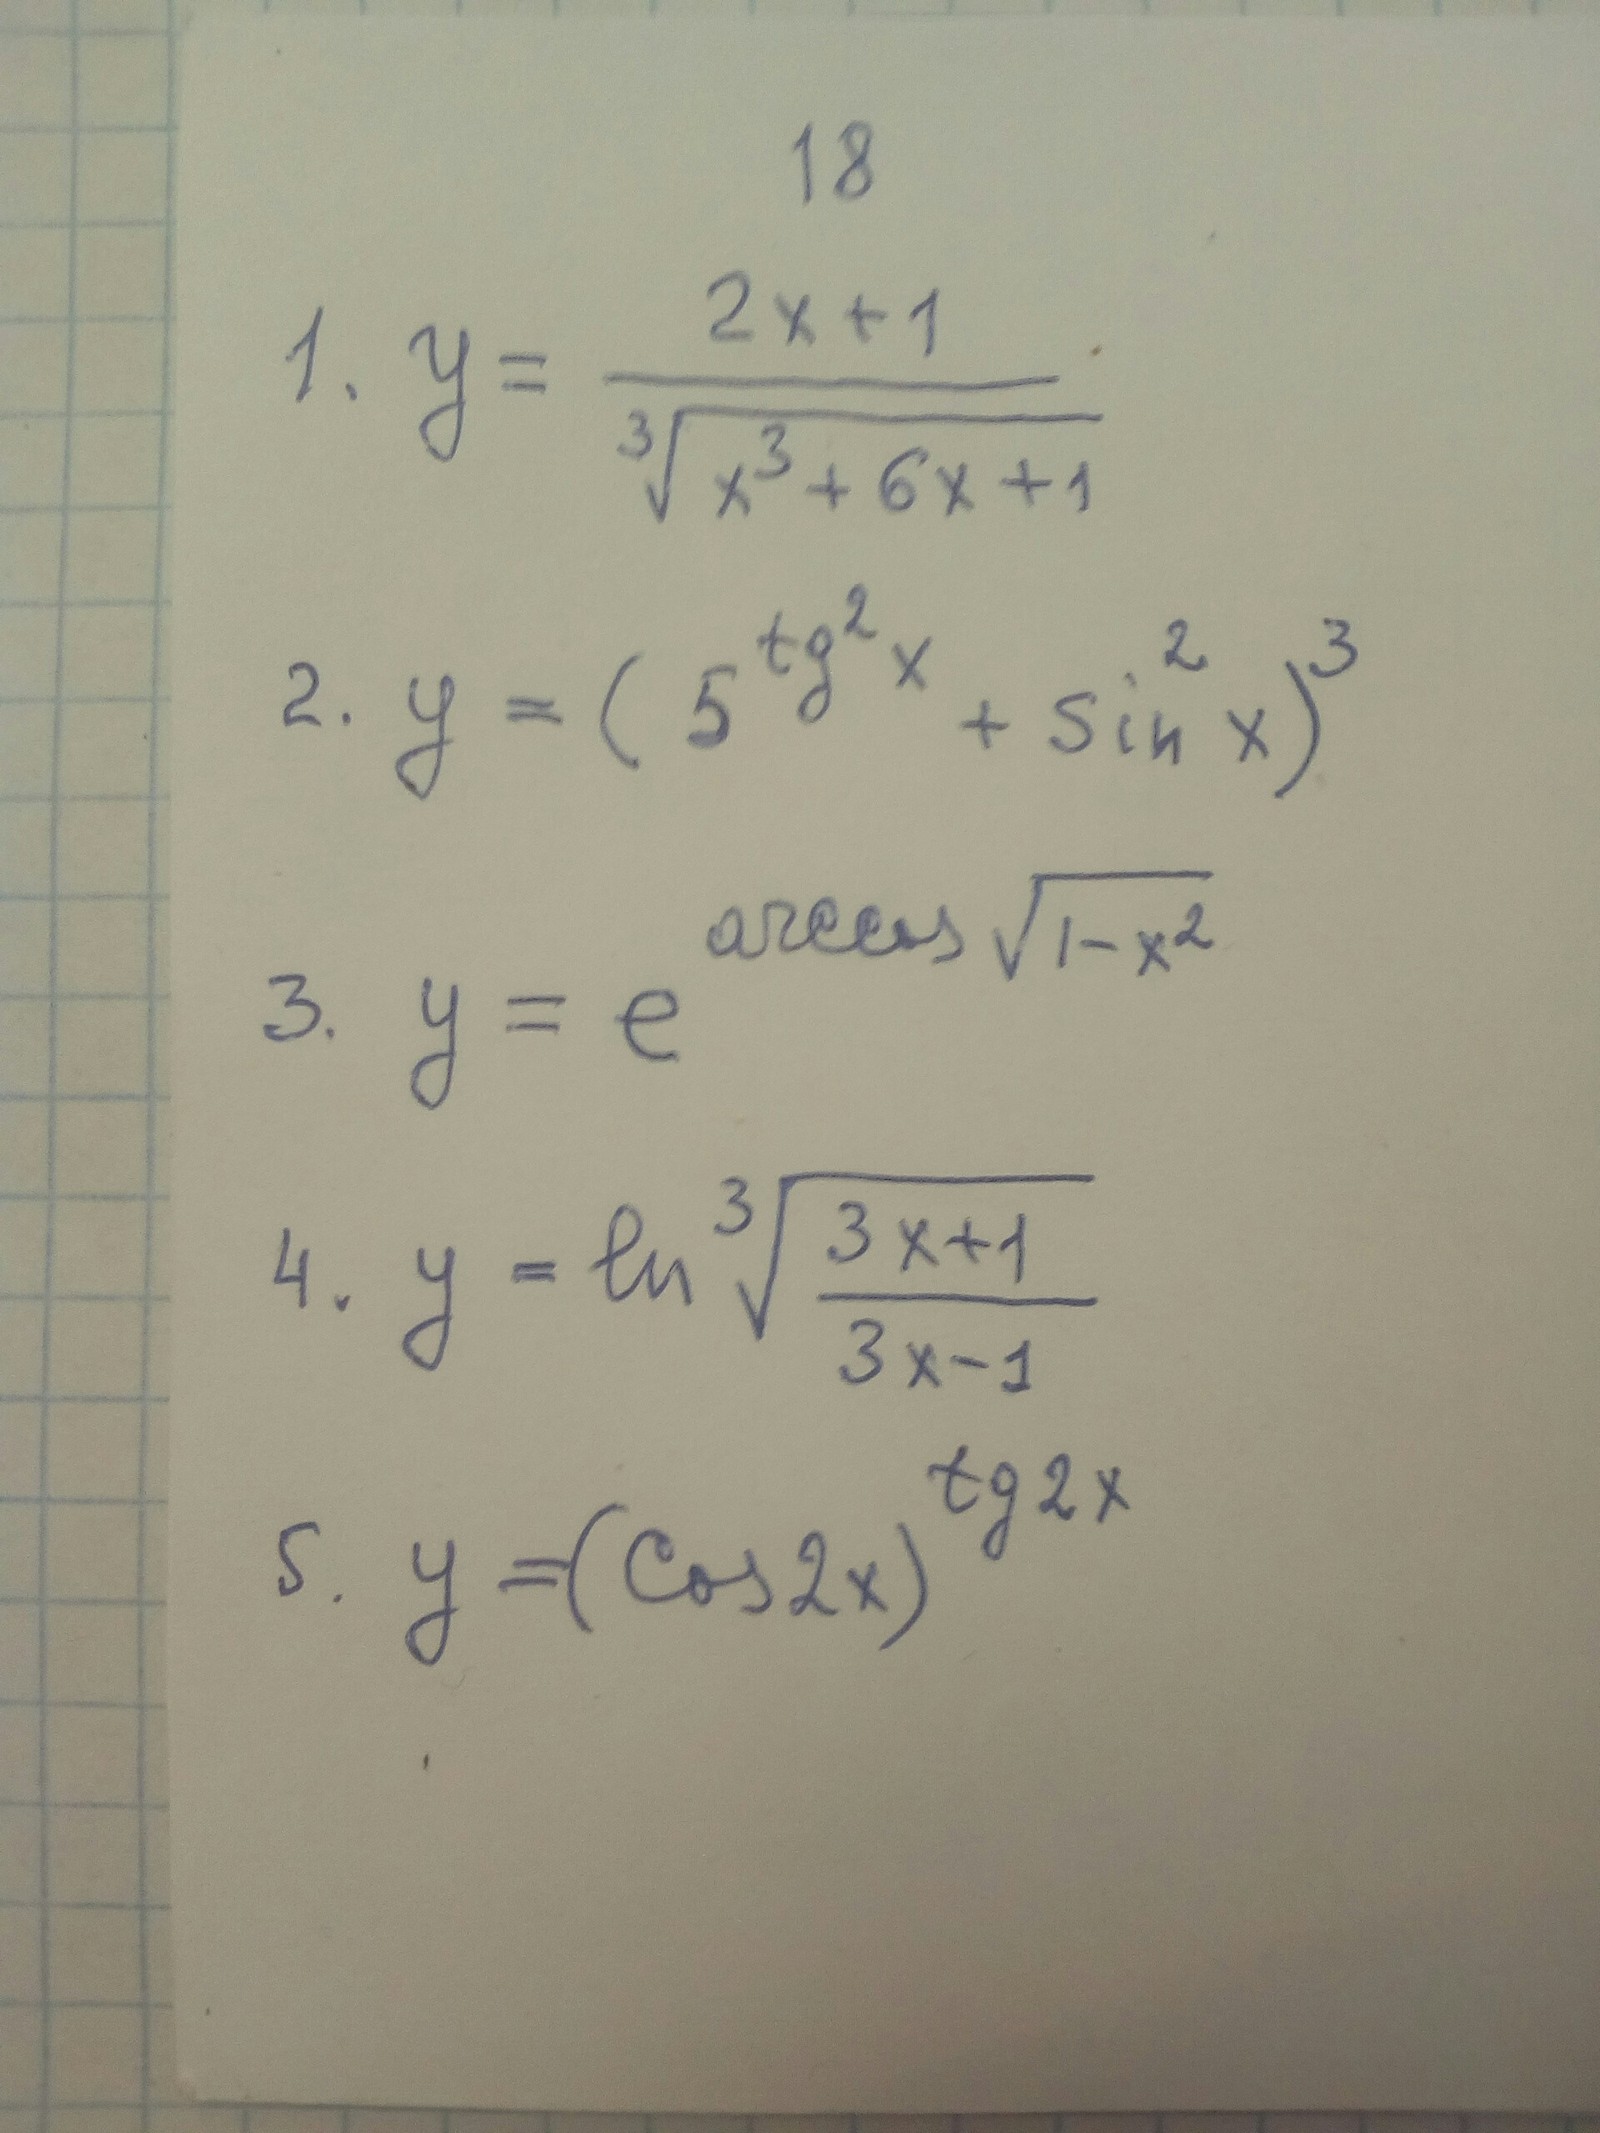 18
1. y = (2x+1)/∛(x³+6x+1)
2. y = (5^(tg²x) + sin²x)³
3. y = e^(arccos√(1-x²))
4. y = ln ∛((3x+1)/(3x-1))
5. y = (cos2x)^(tg2x)